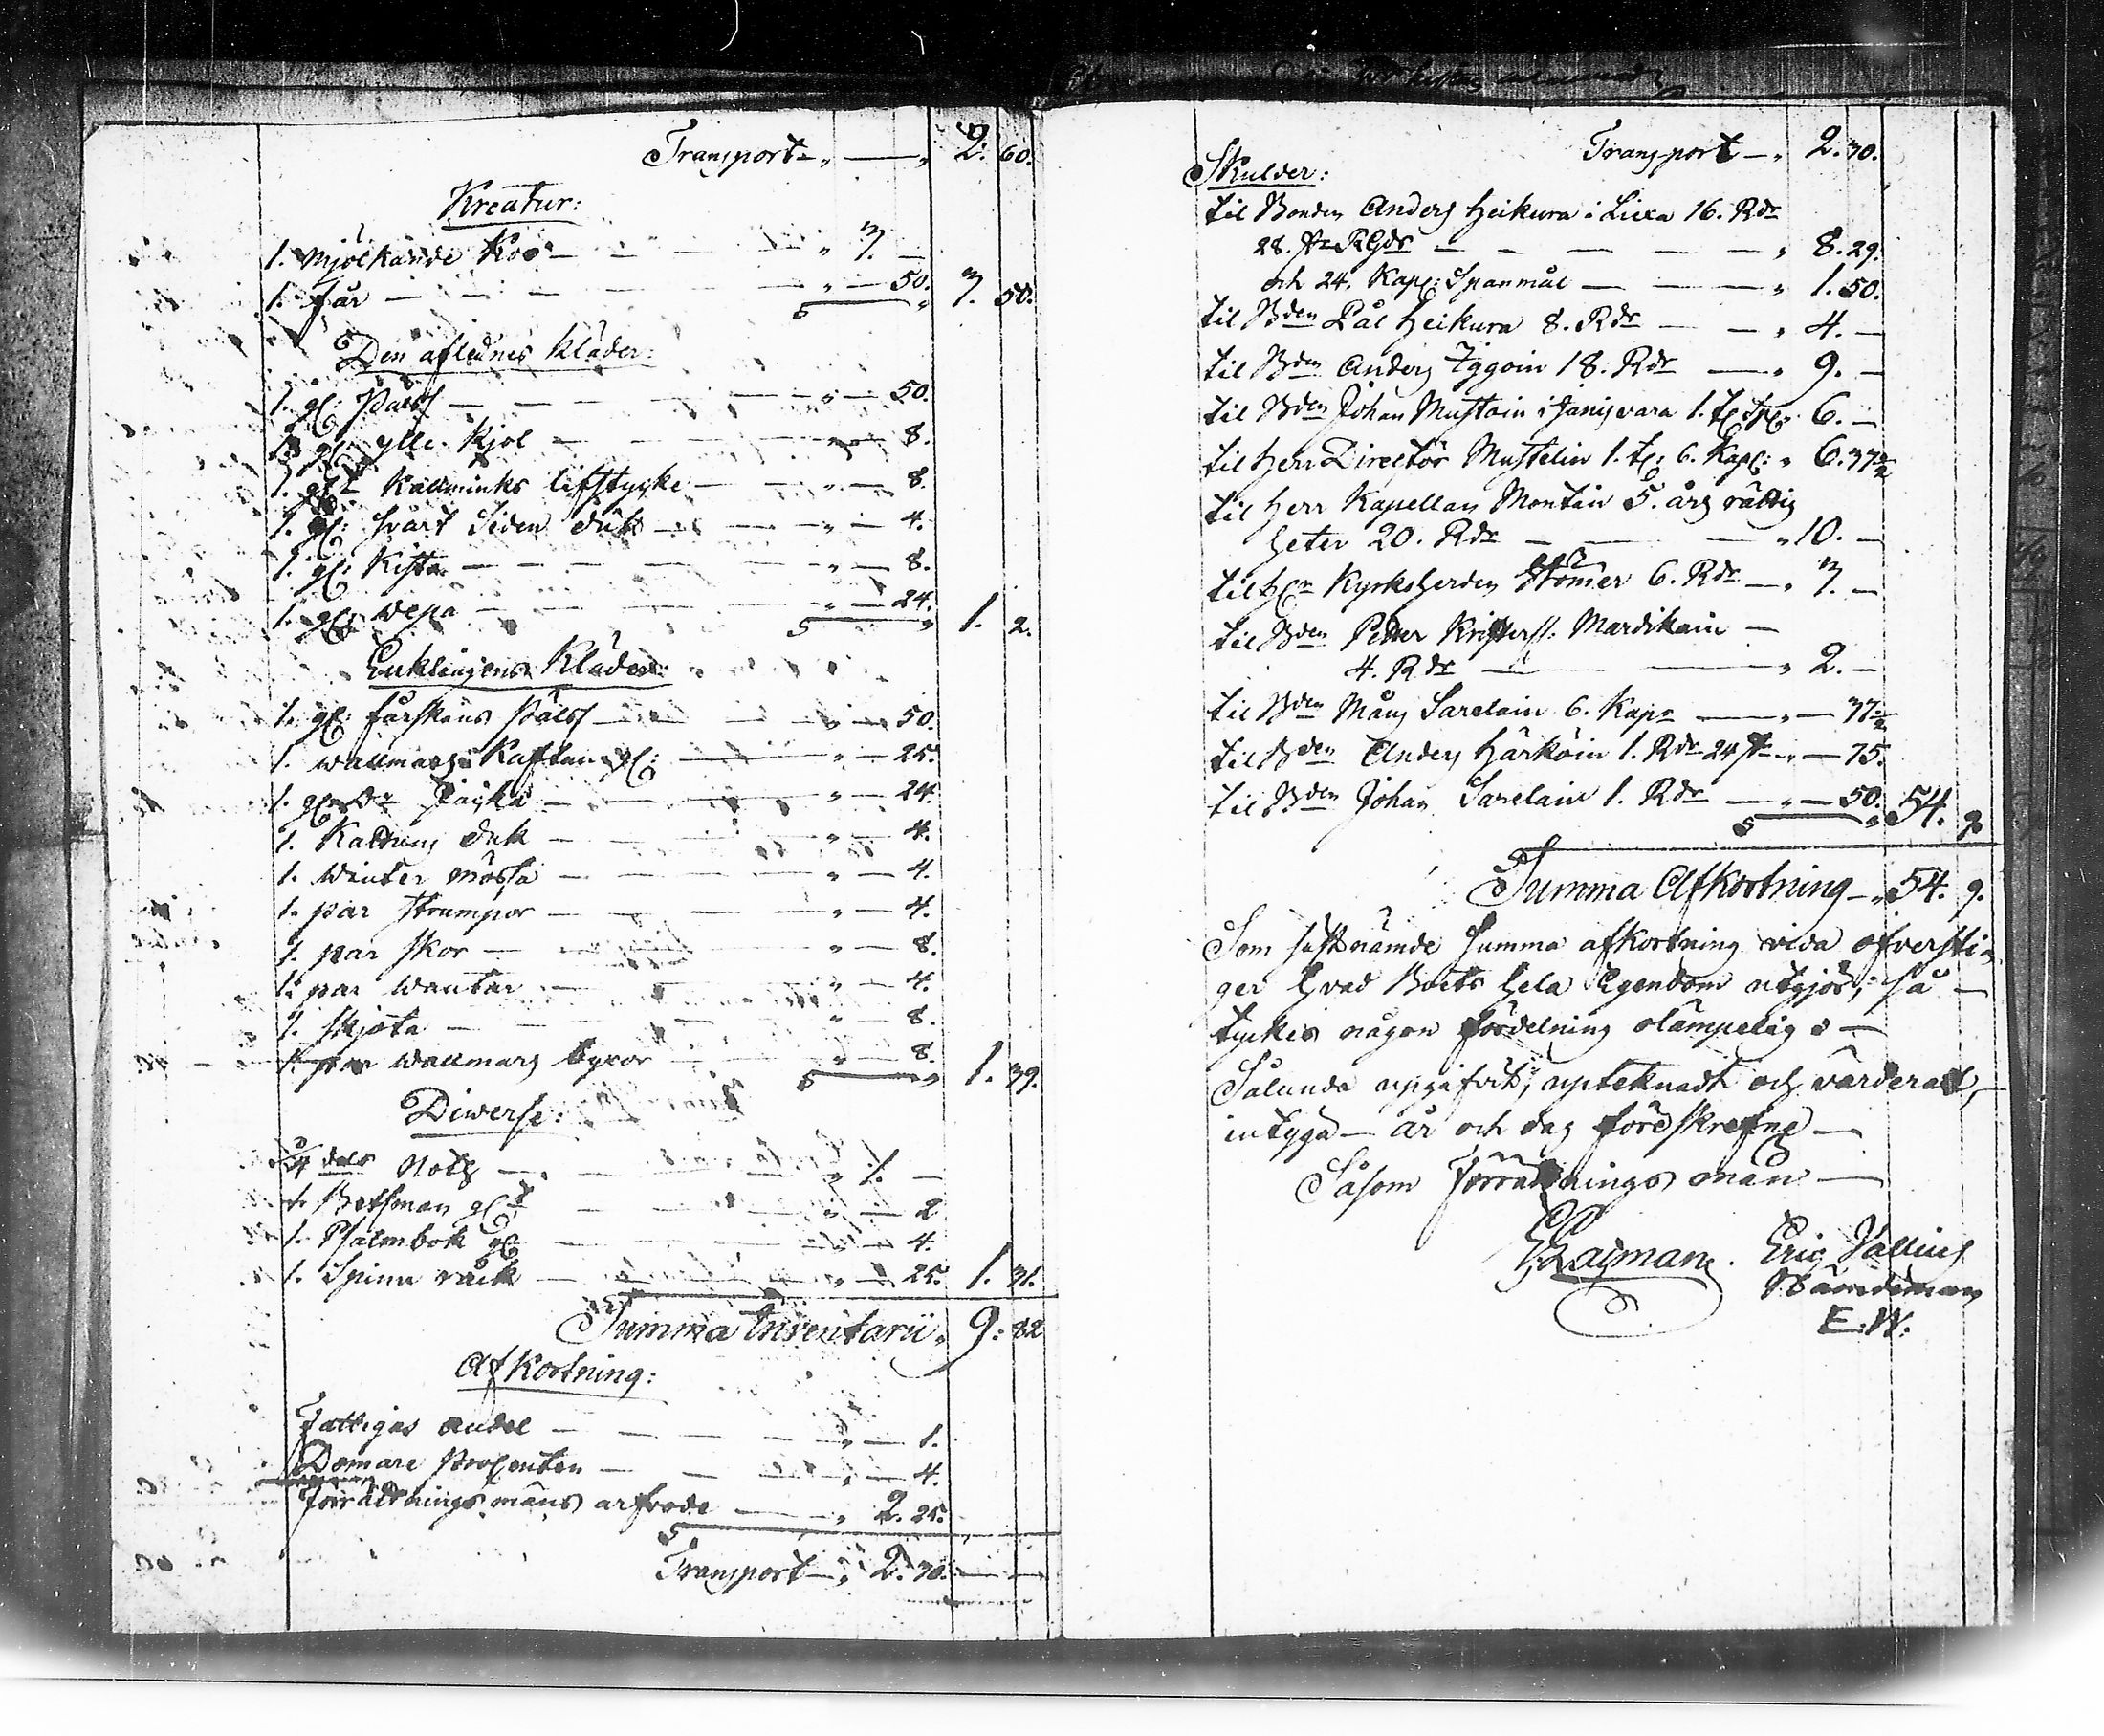 Transport — 2. 60.
Kreatur:
1. Mjölkande Koo — 3. —
1. får — 50. 3. 50.
S
Den aflednes kläder:
1. gl: Päls — 50.
1. gl: ylle kjol — 8.
1. gl: Kallminks lifstycke — 8.
1. gl: svart Siden duk — 4.
1. gl: Kista — 8.
1. gl: wepa — 24. 1. 2.
S
Enklingens Kläder:
1. gl: fårskins Päls — 50.
1. wallmars Kaftan gl: — 25.
1. gl: Dr Jacka — 24.
1. Kattuns duk — 4.
1. Winter mössa — 4.
1. par strumpor — 4.
1. par skor — 8.
1. par wantar — 4.
1. skjota — 8.
1. par wallmars byxor — 8. 1. 39.
S
Diwerse:
dels Noth — 1. —
1. Betsman gl: — 2
1. Psalmbok gl: — 4.
1. Spinn råck — 25. 1. 31.
Summa Inventarii 9: 82
Afkortning:
Fattigas andel — 1.
Domare Procenten — 4.
förrättningsmäns arfvode — 2. 25.
S
Transport — 2. 30.
Transport — 2. 30.
Skulder:
til Bonden Anders Heikura i Lixa 16. Rdr
28. RGds — 8. 29.
och 24. Kap: Spanmål — 1. 50.
til Bden Pål Heikura 8. Rdr — 4. —
til Bden Anders Iggoin 18. Rdr — 9. —
til Bden Johan Mustoin i Janisvara 1. t: Sp: 6. —
til Herr Director Mustelin 1. t: 6. Kap: 6. 37½
til Herr Kapellan Montin 5. års rättig
heter 20. Rdr — 10. —
til Hr Kyrkoherden Stömer 6. Rdr — 3. —
til Bden Petter Kristerss: Mardikain —
4. Rdr — 2. —
til Bden Mång Sarelain 6. Kapr — 37½
til Bden Anders Härköin 1. Rdr 24 — 75.
til Bden Johan Sarelain 1. Rdr — 50. 54. 9
S
Summa Afkortning — 54. 9.
Som sistnämde Summa afkortning vida öfversti-
ger hvad Boets hela Egendom utgjör; så —
tyckes någon fördelning olämpelig —
Sålunda uppgifvit, upteknadt och värderat,
intyga — år och dag föreskrefne —
Såsom förrättnings män —
Eric Vallius
Nämndeman
E: W: